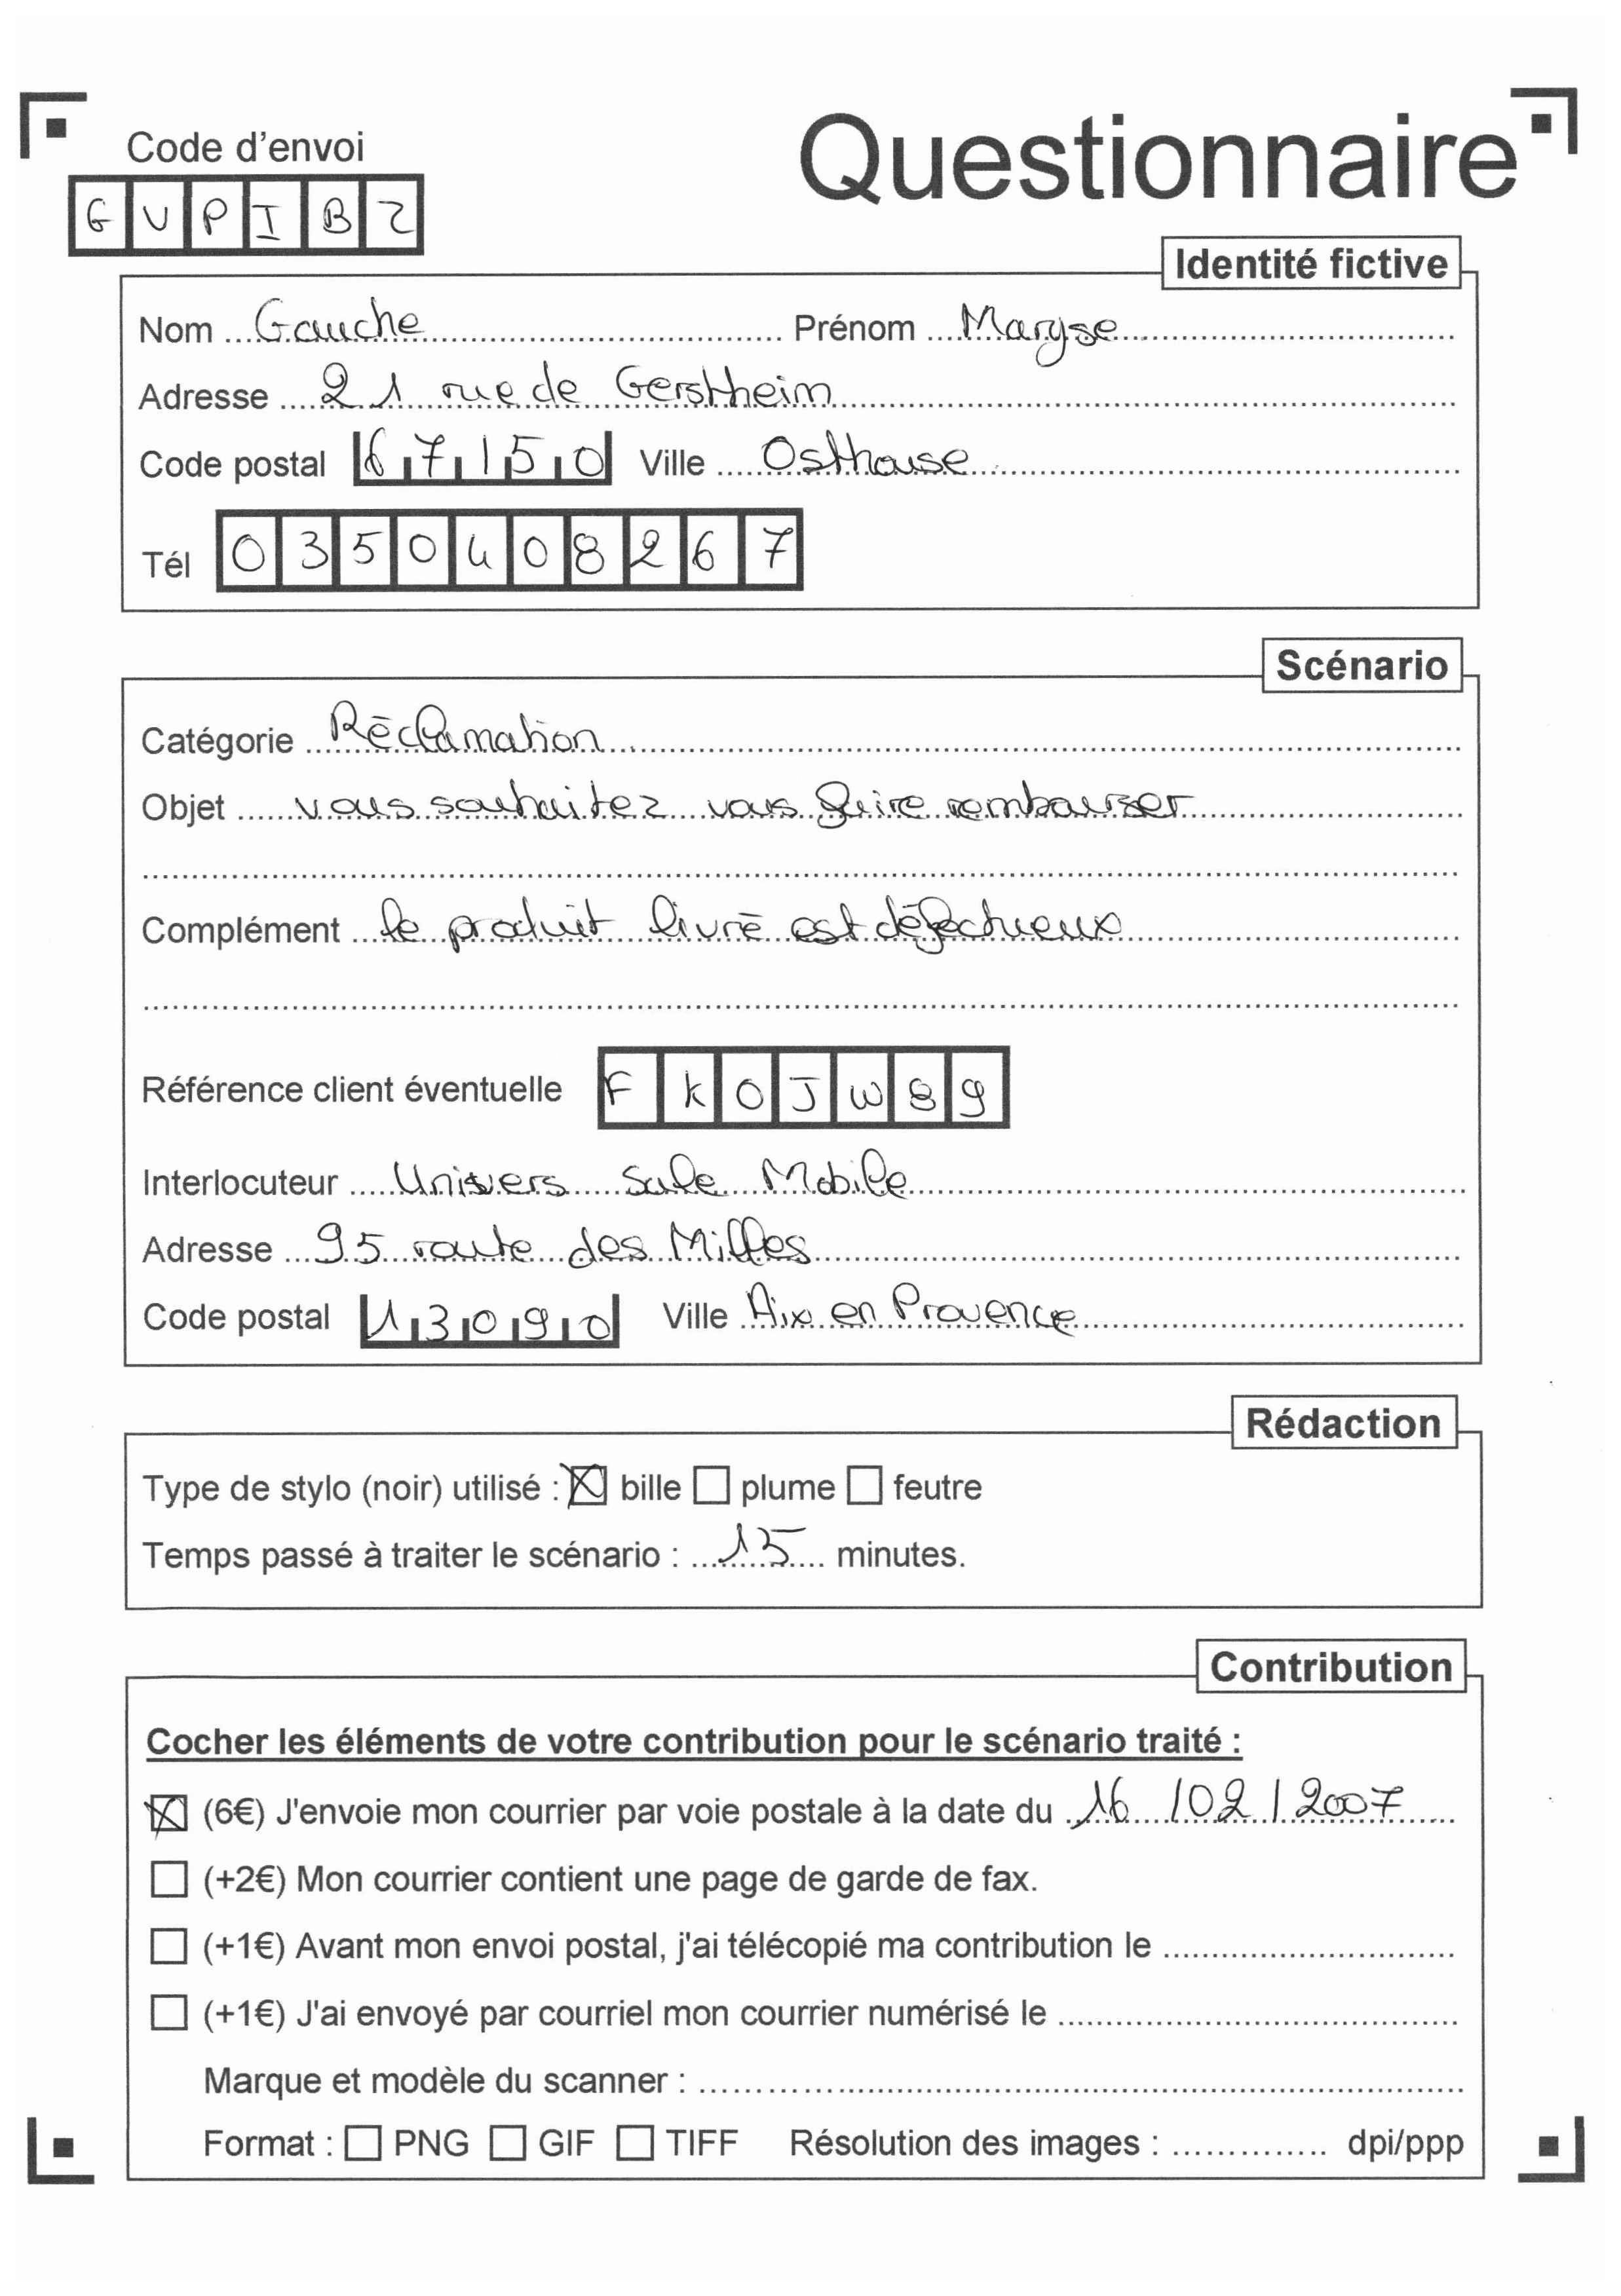 Code d'envoi
Questionnaire
G V P I B Z
Identité fictive
Nom Gauche Prénom Maryse
Adresse 21 rue de Gerstheim
Code postal 67150 Ville Osthouse
Tél 0350408267
Scénario
Catégorie Réclamation
Objet vous souhaitez vous faire rembourser
Complément le produit livré est défectueux
Référence client éventuelle F K O J W 8 9
Interlocuteur Univers Sale Mobile
Adresse 95 route des Milles
Code postal 13090 Ville Aix en Provence
Rédaction
Type de stylo (noir) utilisé : ☒ bille ☐ plume ☐ feutre
Temps passé à traiter le scénario : 15 minutes.
Contribution
Cocher les éléments de votre contribution pour le scénario traité :
☒ (6€) J'envoie mon courrier par voie postale à la date du 16/02/2007
☐ (+2€) Mon courrier contient une page de garde de fax.
☐ (+1€) Avant mon envoi postal, j'ai télécopié ma contribution le
☐ (+1€) J'ai envoyé par courriel mon courrier numérisé le
Marque et modèle du scanner :
Format : ☐ PNG ☐ GIF ☐ TIFF Résolution des images : dpi/ppp